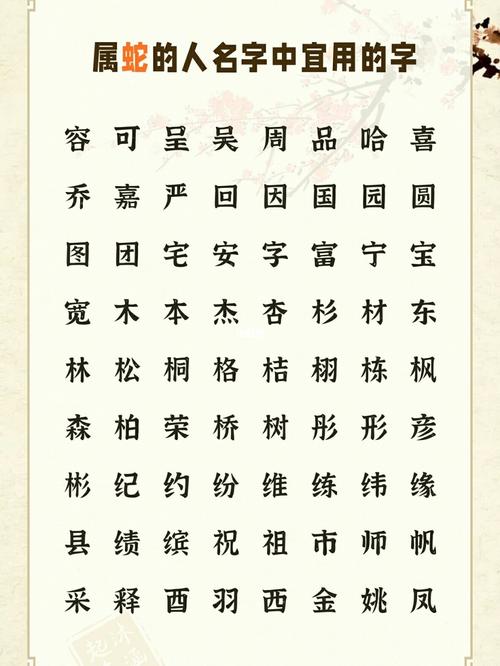 属蛇的人名字中宜用的字
容 可 呈 吴 周 品 哈 喜
乔 嘉 严 回 因 国 园 圆
图 团 宅 安 字 富 宁 宝
宽 木 本 杰 杏 杉 材 东
林 松 桐 格 桔 栩 栋 枫
森 柏 荣 桥 树 彤 形 彦
彬 纪 约 纷 维 练 纬 缘
县 绩 缤 祝 祖 市 师 帆
采 释 酉 羽 西 金 姚 凤